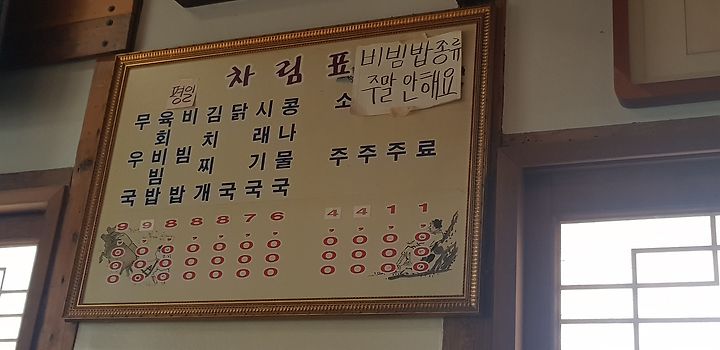 차림표
평일
비빔밥종류
주말 안해요
무우국 9,000
육회비빔밥 9,000
비빔밥 8,000
김치찌개 8,000
닭국 8,000
시래기국 7,000
콩나물국 6,000
소주 4,000
주 4,000
주 1,000
료 1,000